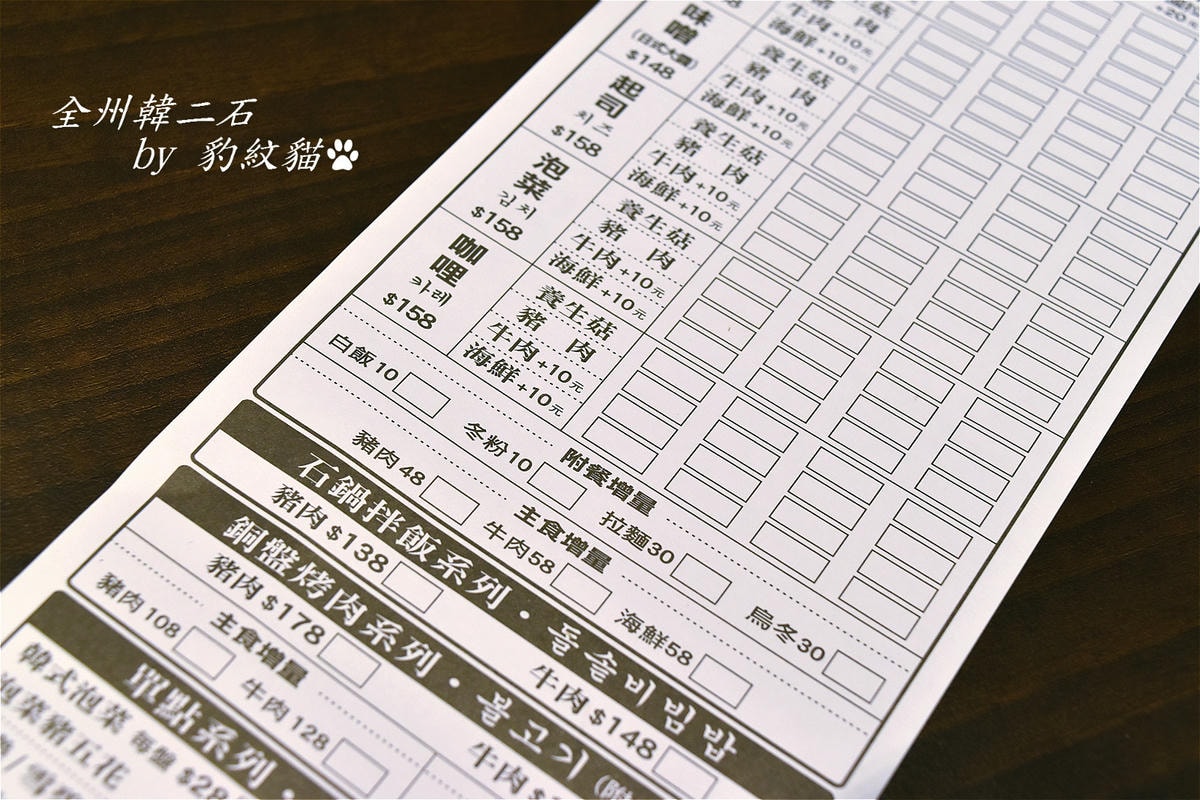 全州韓二石
by 豹紋貓
肉
牛肉+10元
海鮮+10元
味噌
(日式大醬)
$148
養生菇
豬 肉
牛肉+10元
海鮮+10元
起司
치즈
$158
養生菇
豬 肉
牛肉+10元
海鮮+10元
泡菜
김치
$158
養生菇
豬 肉
牛肉+10元
海鮮+10元
咖哩
카레
$158
養生菇
豬 肉
牛肉+10元
海鮮+10元
附餐增量
白飯10 冬粉10 拉麵30 烏冬30
主食增量
豬肉48 牛肉58 海鮮58
石鍋拌飯系列・돌솥비빔밥
豬肉 $138 牛肉 $148
銅盤烤肉系列・불고기
豬肉 $178 牛肉
主食增量
豬肉108 牛肉128
單點系列・
韓式泡菜 每盤 $28
泡菜豬五花